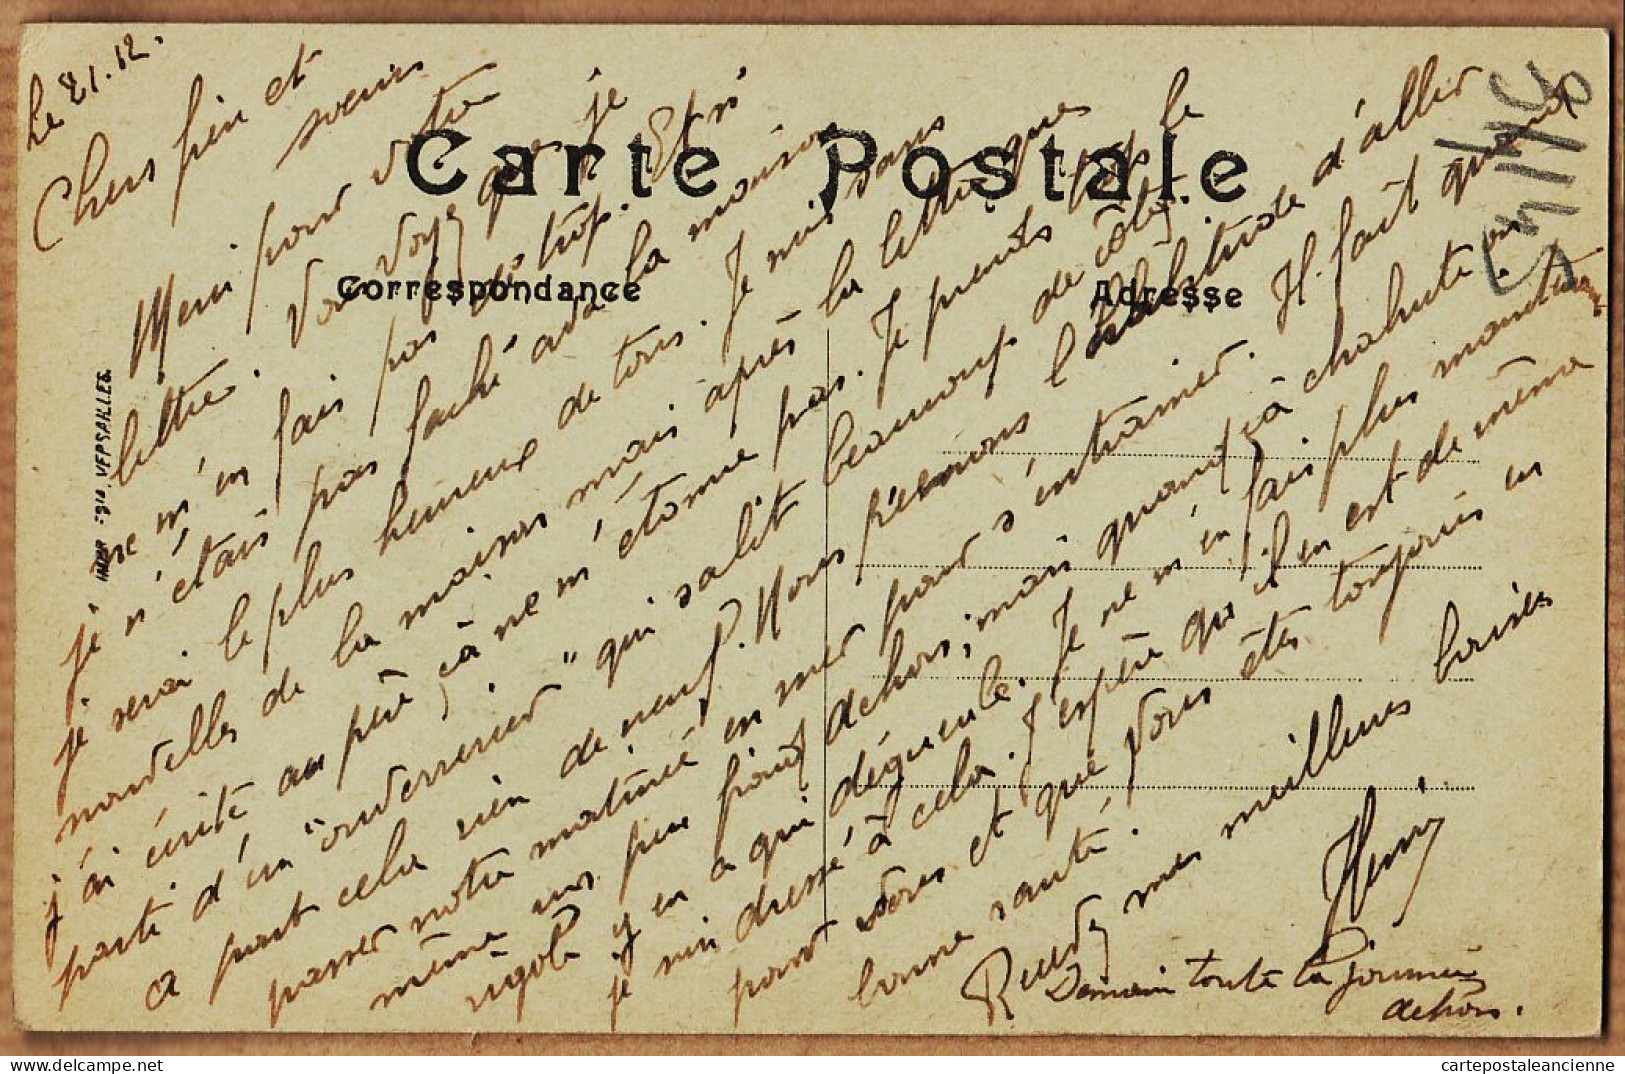 Le 21.12.
Chers père et
soeurs
Carte Postale
Correspondance
Adresse
Merci pour votre
lettre. Vous voyez que je
ne m'en fais pas trop. Et si
je n'étais pas faché avec la maison
je serai le plus heureux de tous. Je suis sans
nouvelles de la maison mais après la lettre que
j'ai écrite au père çà ne m'étonne pas. Je prends le
parti d'un "onderreruer" qui salit beaucoup de côtés.
a part cela rien de neuf. Nous prenons l'habitude d'aller
passer notre matinée en mer pour s'entrainer. Il fait quand
même un peu froid dehors; mais quand çà chahute on
rigole y en a qui dégueule. Je ne m'en fais plus maintenant
je suis dressé à cela. J'espère qu'il en est de même
pour vous et que vous êtes toujours en
bonne santé.
Recevez mes meilleurs baisers
Henri
Demain toute la journée
dehors.
VERSAILLES.
cartepostaleancienne